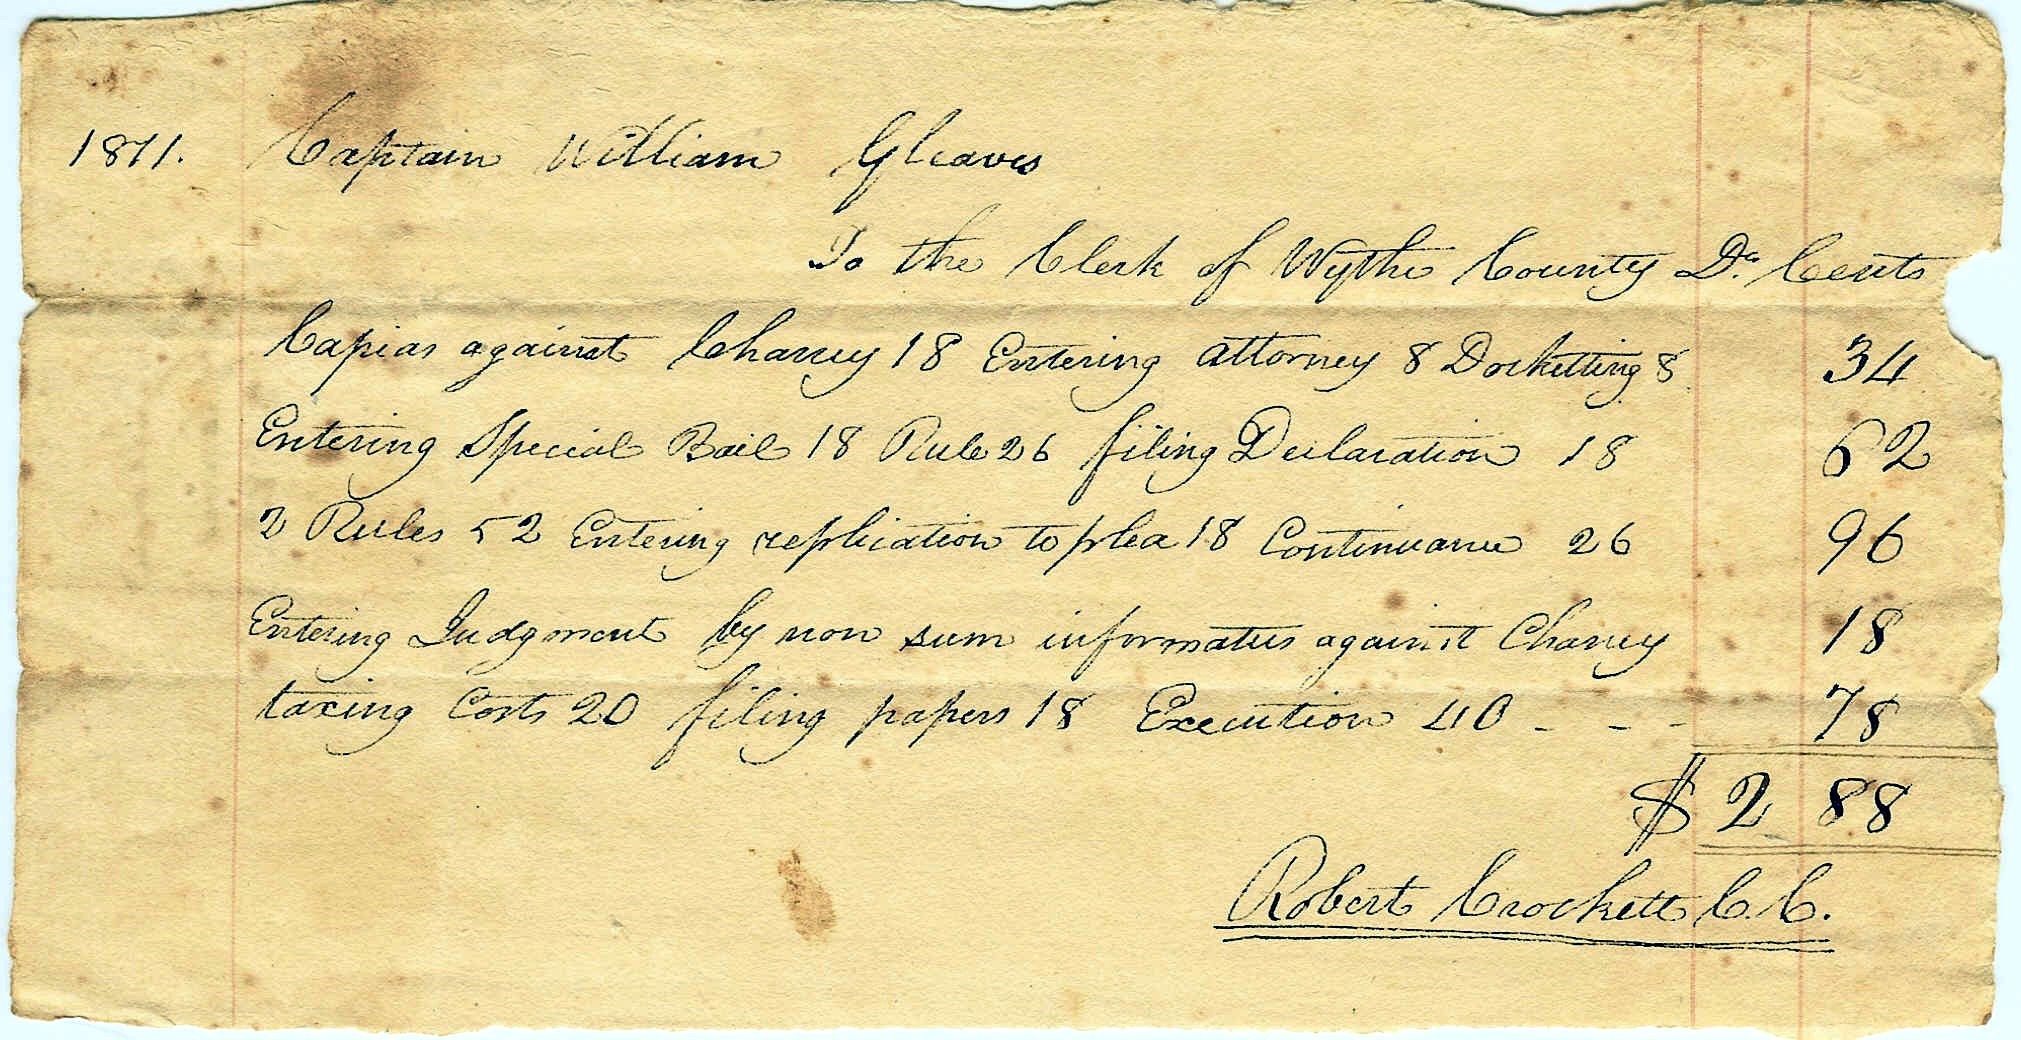 1811. Captain William Gleaves
To the Clerk of Wythe County Dr. Cents
Capias against Chaney 18 Entering attorney 8 Docketting 8 34
Entering Special Bail 18 Rule 26 filing Declaration 18 62
2 Rules 52 Entering replication to plea 18 Continuance 26 96
Entering Judgment by non sum informatus against Chaney 18
taxing Costs 20 filing papers 18 Execution 40 - - - 78
$ 2 88
Robert Crockett C.C.